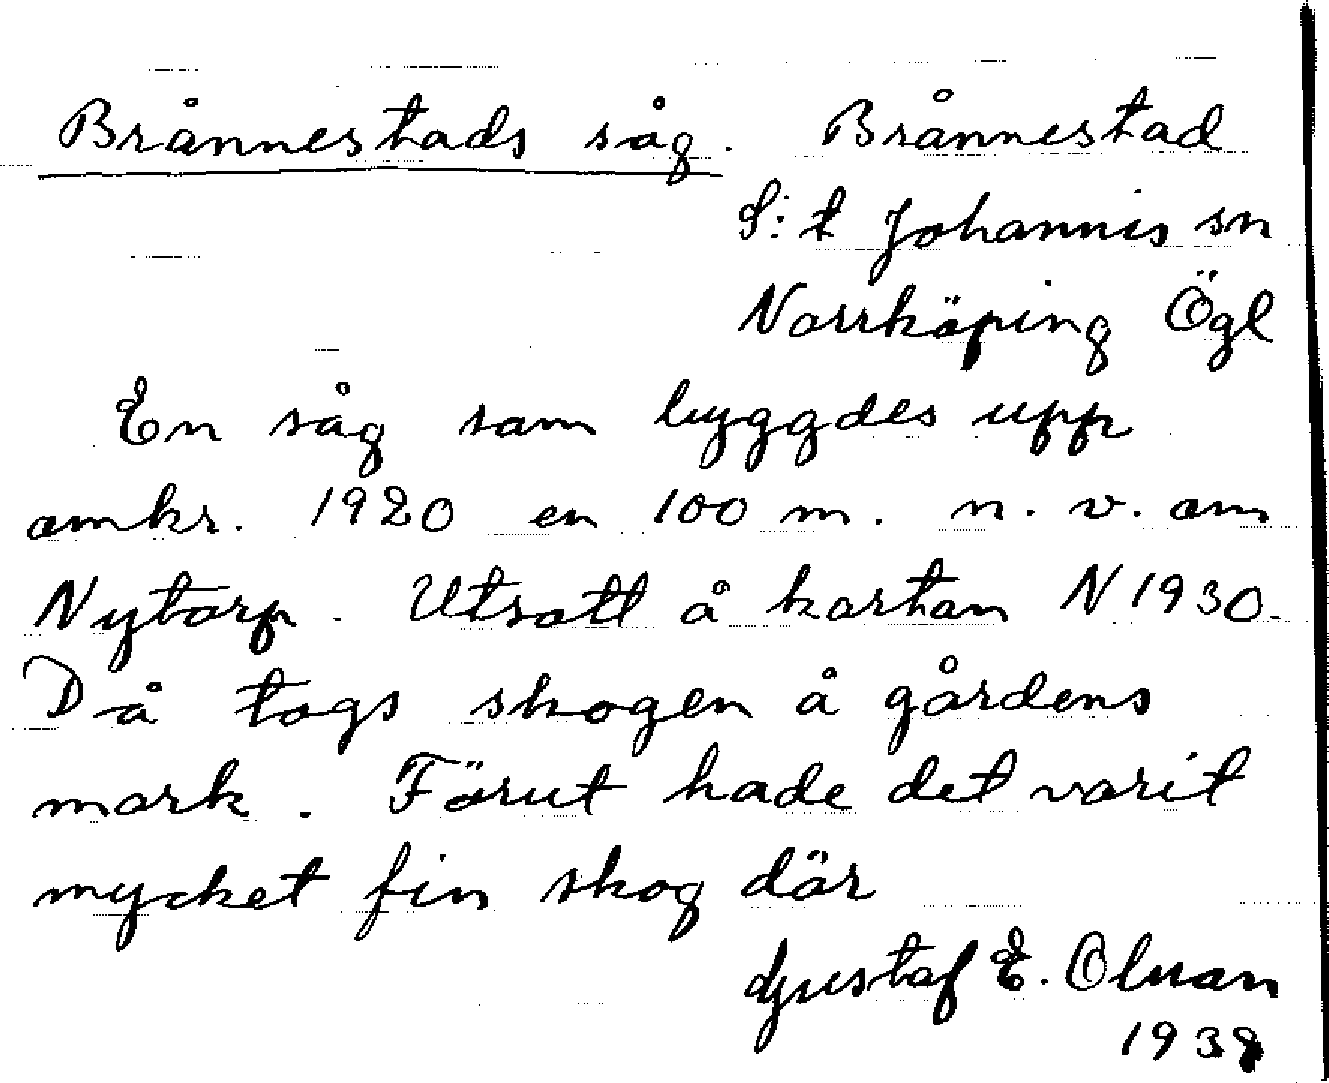 Brånnestads såg. Brånnestad
S:t Johannis sn
Norrköping Ögl
En såg som byggdes upp
omkr. 1920 en 100 m. n. v. om
Nytorp. Utsatt å kartan N 1930.
Då togs skogen å gårdens
mark. Förut hade det varit
mycket fin skog där
Gustaf E. Olson
1938